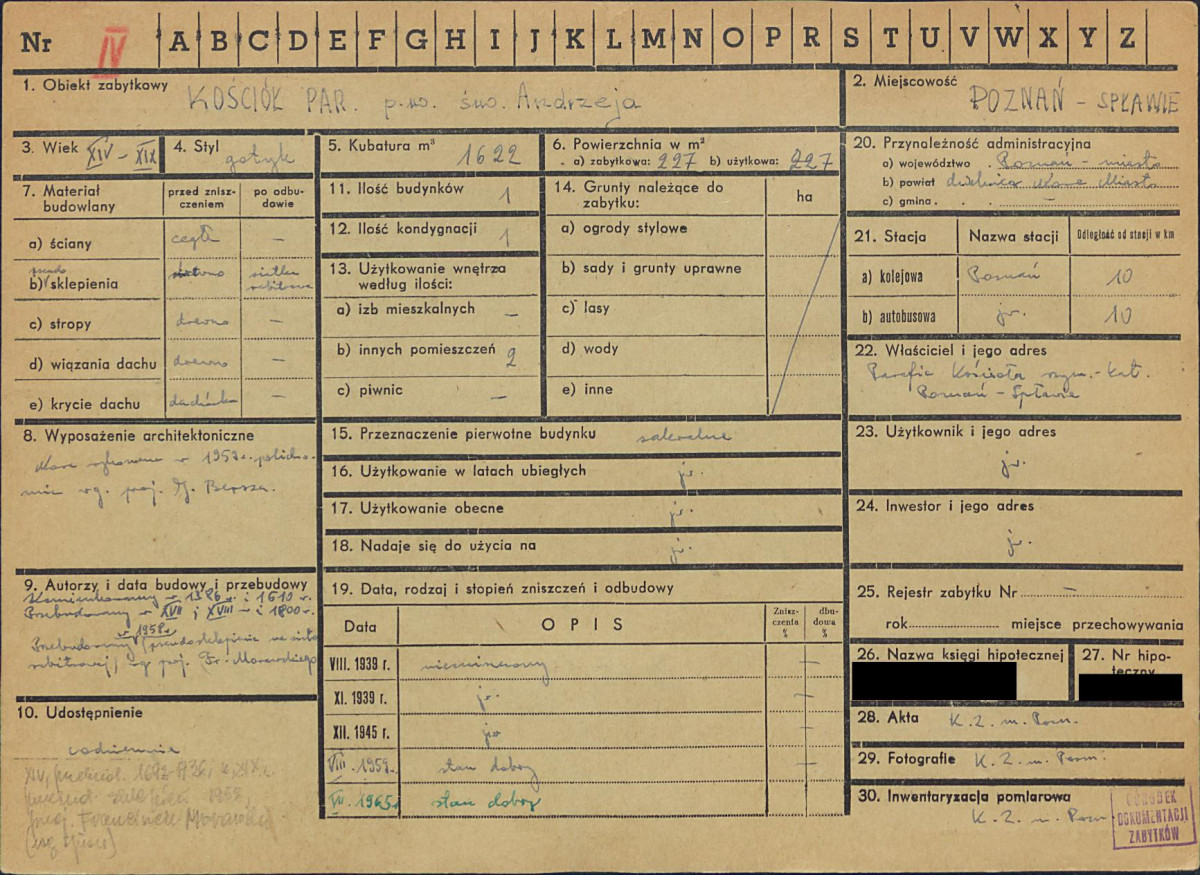 Nr IV A B C D E F G H I J K L M N O P R S T U V W X Y Z
1. Obiekt zabytkowy KOŚCIÓŁ PAR. p.w. św. Andrzeja
2. Miejscowość
POZNAŃ - SPŁAWIE
3. Wiek XIV - XIX
4. Styl gotyk
5. Kubatura m³ 1622
6. Powierzchnia w m²
a) zabytkowa: 227 b) użytkowa: 227
7. Materiał budowlany
przed zniszczeniem
po odbudowie
a) ściany cegła —
pseudo
b) sklepienia siatka rabitowa
c) stropy drewno —
d) wiązania dachu drewno —
e) krycie dachu dachówka —
8. Wyposażenie architektoniczne
w 1958 r. polichromia wg. proj. Bersza.
9. Autorzy i data budowy i przebudowy
w 1386 r. i 1610 r.
Przebudowany w XVII i XVIII w i 1800 r.
w 1958 r.
Przebudowany (pseudosklepienie na siatce
rabitowej) wg proj. Fr. Morawskiego
10. Udostępnienie
codziennie
XIV, 1958,
proj. Franciszek Morawski
11. Ilość budynków 1
12. Ilość kondygnacji 1
13. Użytkowanie wnętrza
według ilości:
a) izb mieszkalnych —
b) innych pomieszczeń 2
c) piwnic —
14. Grunty należące do
zabytku:
ha
a) ogrody stylowe
b) sady i grunty uprawne
c) lasy
d) wody
e) inne
15. Przeznaczenie pierwotne budynku sakralne
16. Użytkowanie w latach ubiegłych jw.
17. Użytkowanie obecne jw.
18. Nadaje się do użycia na jw.
19. Data, rodzaj i stopień zniszczeń i odbudowy
Data OPIS Zniszczenia % dbudowa %
VIII. 1939 r. niezniszczony —
XI. 1939 r. jw. —
XII. 1945 r. jw —
VIII. 1959. stan dobry —
1965r stan dobry
20. Przynależność administracyjna
a) województwo Poznań - miasto
b) powiat dzielnica Nowe Miasto
c) gmina —
21. Stacja Nazwa stacji Odległość od stacji w km
a) kolejowa Poznań 10
b) autobusowa jw. 10
22. Właściciel i jego adres
Parafia Kościoła rzym.-kat.
Poznań - Spławie
23. Użytkownik i jego adres
jw.
24. Inwestor i jego adres
jw.
25. Rejestr zabytku Nr —
rok miejsce przechowywania
26. Nazwa księgi hipotecznej
27. Nr hipoteczny
28. Akta K. Z. m. Pozn.
29. Fotografie K. Z. m. Pozn.
30. Inwentaryzacja pomiarowa
K. Z. m. Pozn
OŚRODEK
DOKUMENTACJI
ZABYTKÓW